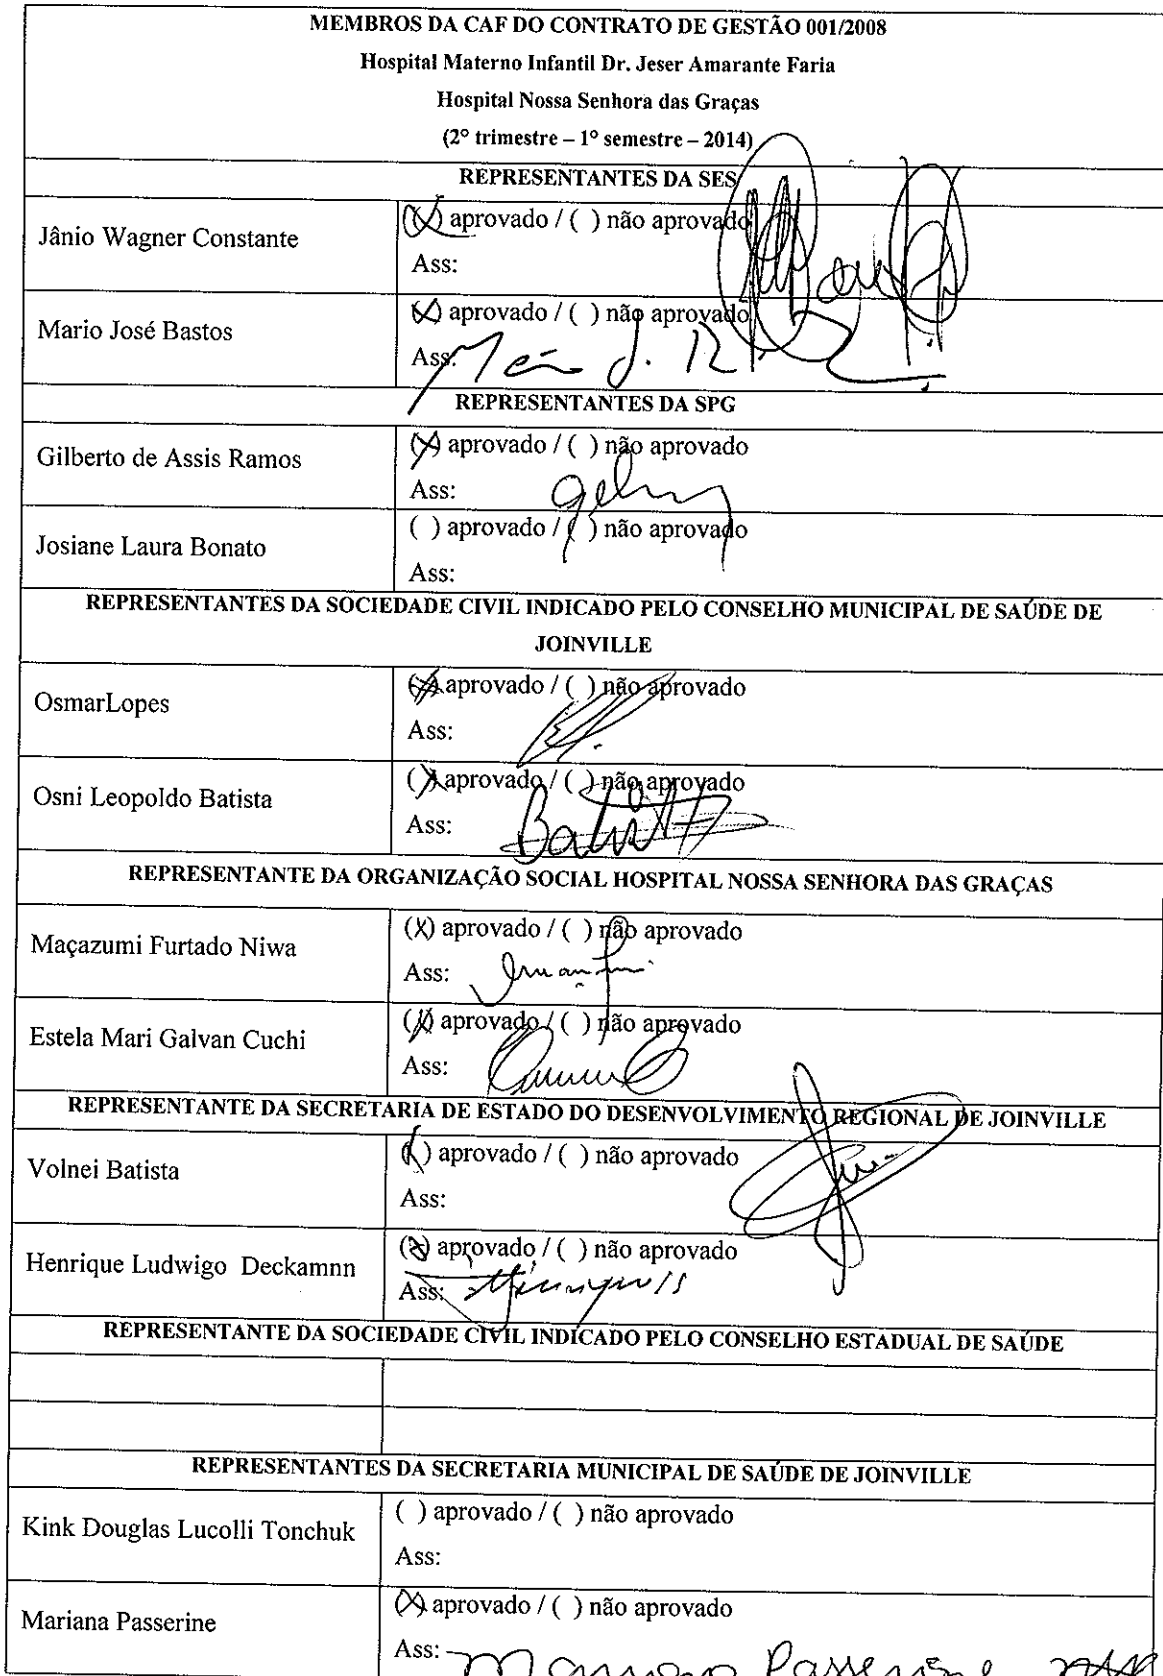 MEMBROS DA CAF DO CONTRATO DE GESTÃO 001/2008
Hospital Materno Infantil Dr. Jeser Amarante Faria
Hospital Nossa Senhora das Graças
(2° trimestre – 1° semestre – 2014)
REPRESENTANTES DA SES
Jânio Wagner Constante
(X) aprovado / ( ) não aprovado
Ass:
Mario José Bastos
(X) aprovado / ( ) não aprovado
Ass:
REPRESENTANTES DA SPG
Gilberto de Assis Ramos
(X) aprovado / ( ) não aprovado
Ass:
Josiane Laura Bonato
( ) aprovado / ( ) não aprovado
Ass:
REPRESENTANTES DA SOCIEDADE CIVIL INDICADO PELO CONSELHO MUNICIPAL DE SAÚDE DE
JOINVILLE
OsmarLopes
(X) aprovado / ( ) não aprovado
Ass:
Osni Leopoldo Batista
(X) aprovado / ( ) não aprovado
Ass: Batista
REPRESENTANTE DA ORGANIZAÇÃO SOCIAL HOSPITAL NOSSA SENHORA DAS GRAÇAS
Maçazumi Furtado Niwa
(X) aprovado / ( ) não aprovado
Ass:
Estela Mari Galvan Cuchi
(X) aprovado / ( ) não aprovado
Ass:
REPRESENTANTE DA SECRETARIA DE ESTADO DO DESENVOLVIMENTO REGIONAL DE JOINVILLE
Volnei Batista
(X) aprovado / ( ) não aprovado
Ass:
Henrique Ludwigo Deckamnn
(X) aprovado / ( ) não aprovado
Ass:
REPRESENTANTE DA SOCIEDADE CIVIL INDICADO PELO CONSELHO ESTADUAL DE SAÚDE
REPRESENTANTES DA SECRETARIA MUNICIPAL DE SAÚDE DE JOINVILLE
Kink Douglas Lucolli Tonchuk
( ) aprovado / ( ) não aprovado
Ass:
Mariana Passerine
(X) aprovado / ( ) não aprovado
Ass: Mariana Passerine